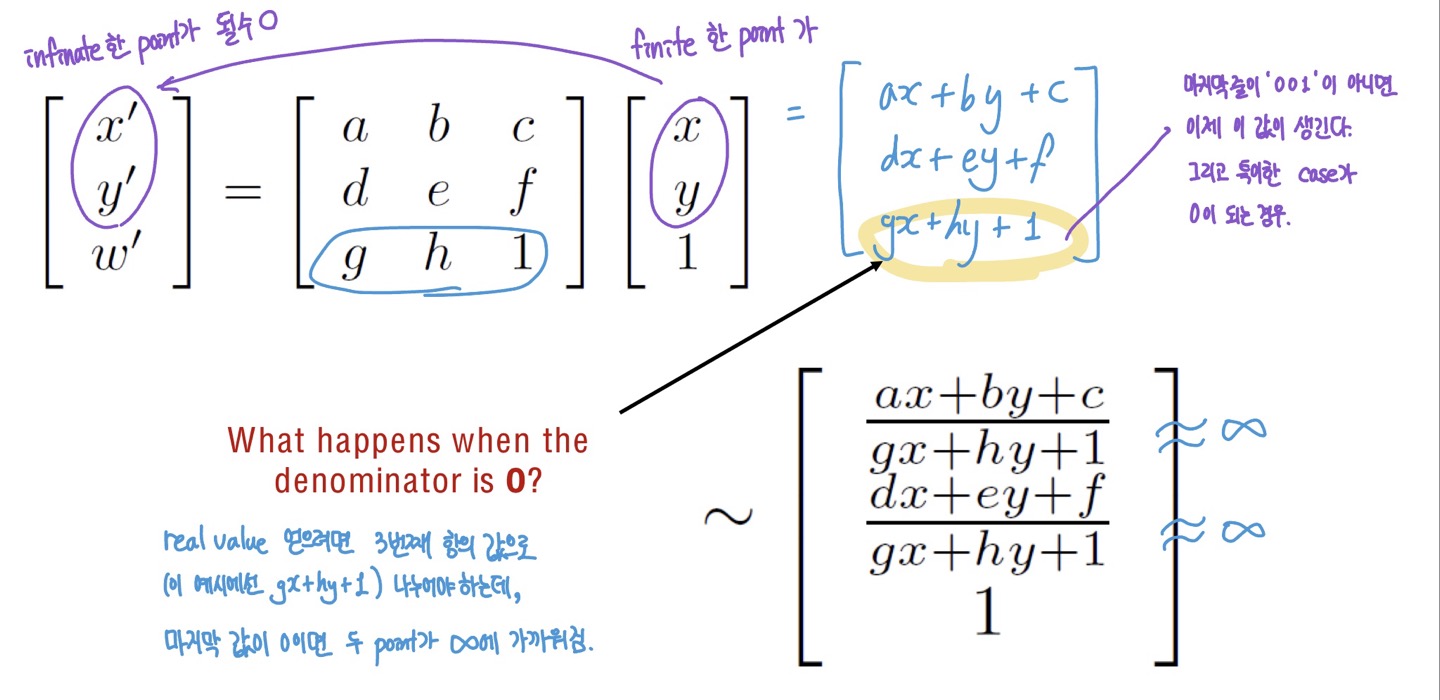 infinate 한 point가 될수 O
finite 한 point 가
[ x′ ] = [ a b c ] [ x ] = [ ax+by+c ]
[ y′ ] [ d e f ] [ y ] [ dx+ey+f ]
[ w′ ] [ g h 1 ] [ 1 ] [ gx+hy+1 ]
마지막줄이 '001'이 아니면
이제 이 값이 생긴다.
그리고 특이한 case가
0이 되는 경우.
What happens when the
denominator is 0?
real value 얻으려면 3번째 항의 값으로
(이 예시에선 gx+hy+1) 나누어야하는데,
마지막 값이 0이면 두 point가 ∞에 가까워짐.
∼
ax+by+c
gx+hy+1
≈ ∞
dx+ey+f
gx+hy+1
≈ ∞
1